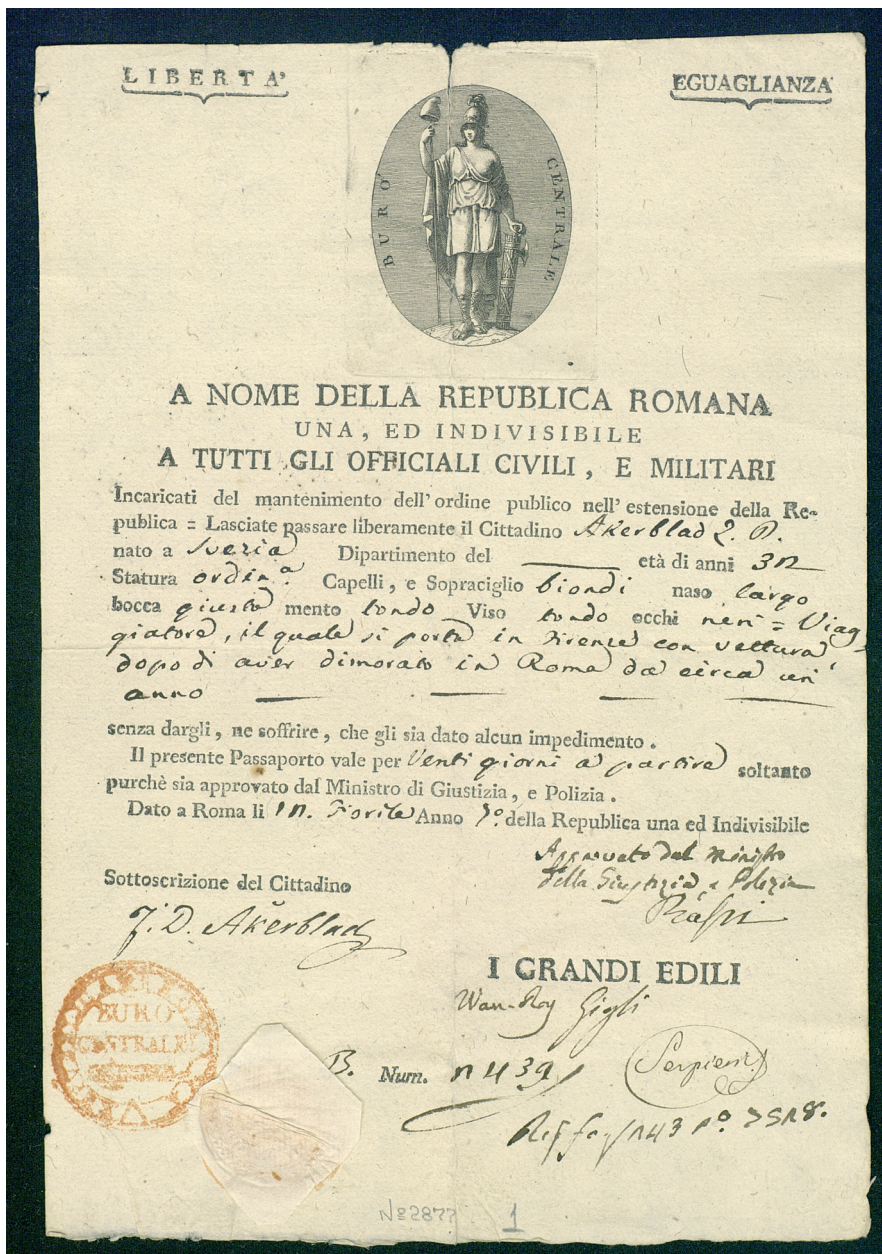 LIBERTA'
EGUAGLIANZA
BURO' CENTRALE
A NOME DELLA REPUBLICA ROMANA
UNA, ED INDIVISIBILE
A TUTTI GLI OFFICIALI CIVILI, E MILITARI
Incaricati del mantenimento dell'ordine publico nell'estensione della Re-
publica = Lasciate passare liberamente il Cittadino Akerblad
nato a Svezia Dipartimento del età di anni
Statura ordin.ª Capelli, e Sopraciglio biondi naso largo
bocca giusta mento tondo Viso tondo occhi neri = Viag-
giatore, il quale si porta in Firenze con vettura,
dopo di aver dimorato in Roma da circa un
anno
senza dargli, ne soffrire, che gli sia dato alcun impedimento.
Il presente Passaporto vale per Venti giorni a partire soltanto
purchè sia approvato dal Ministro di Giustizia, e Polizia.
Dato a Roma li Fiorile Anno 7.º della Republica una ed Indivisibile
Approvato dal Ministro
della Giustizia e Polizia
Sottoscrizione del Cittadino
J. D. Åkerblad
I GRANDI EDILI
Gigli
BURO
CENTRALE
B. Num.
Serpieri
Nº 2877 1